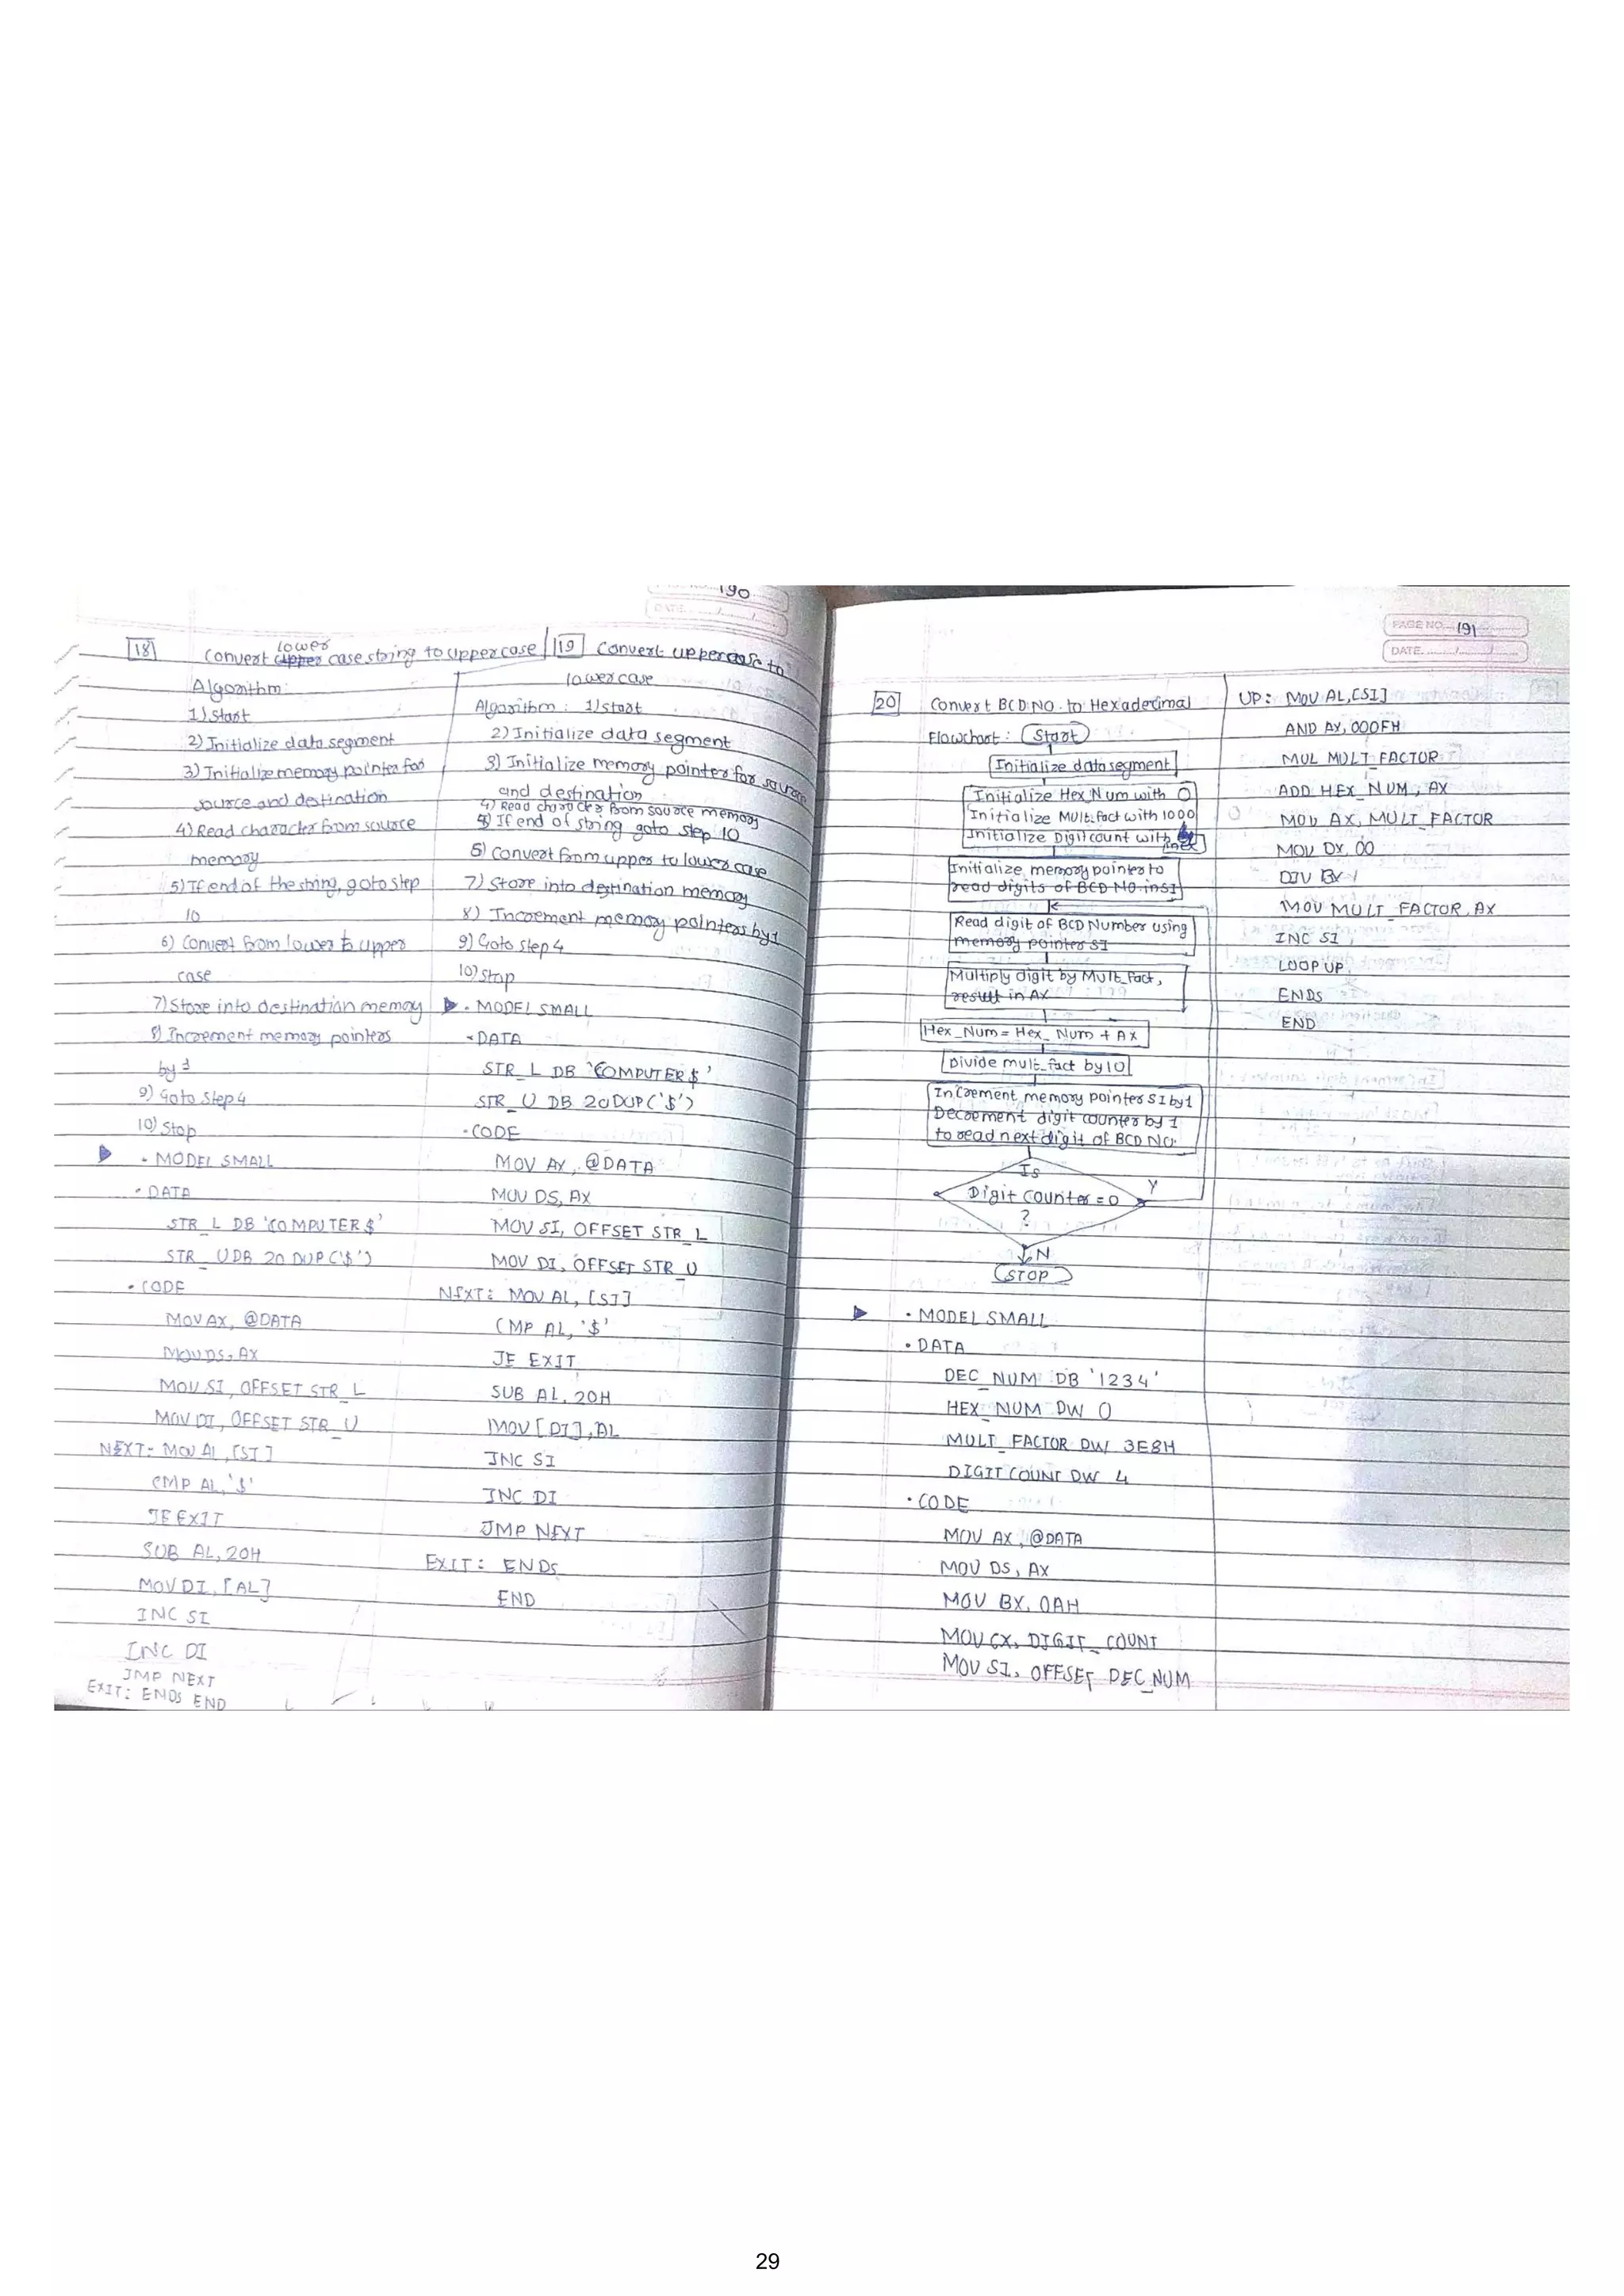 190
DATE
18 Convert lower case string to uppercase
Algorithm:
1) Start
2) Initialize data segment
3) Initialize memory pointer for
source and destination
4) Read character from source
memory
5) If end of the string, goto step
10
6) Convert from lower to upper
case
7) Store into destination memory
8) Increment memory pointers
by 1
9) Goto step 4
10) Stop
. MODEL SMALL
. DATA
STR_L DB 'COMPUTER$'
STR_U DB 20 DUP('$')
. CODE
MOV AX, @DATA
MOV DS, AX
MOV SI, OFFSET STR_L
MOV DI, OFFSET STR_U
NEXT: MOV AL, [SI]
CMP AL, '$'
JE EXIT
SUB AL, 20H
MOV DI, [AL]
INC SI
INC DI
JMP NEXT
EXIT: ENDS END
19 Convert uppercase to
lowercase
Algorithm: 1) Start
2) Initialize data segment
3) Initialize memory pointer for source
and destination
4) Read character from source memory
5) If end of string goto step 10
6) Convert from upper to lower case
7) Store into destination memory
8) Increment memory pointers by 1
9) Goto step 4
10) Stop
. MODEL SMALL
. DATA
STR_L DB 'COMPUTER$'
STR_U DB 20DUP('$')
. CODE
MOV AX, @DATA
MOV DS, AX
MOV SI, OFFSET STR_L
MOV DI, OFFSET STR_U
NEXT: MOV AL, [SI]
CMP AL, '$'
JE EXIT
SUB AL, 20H
MOV [DI], AL
INC SI
INC DI
JMP NEXT
EXIT: ENDS
END
PAGE NO. 191
DATE
20 Convert BCD NO. to Hexadecimal
Flowchart: Start
Initialize data segment
Initialize Hex_Num with 0
Initialize Mult_fact with 1000
Initialize Digit count with
Initialize memory pointer to
read digits of BCD NO. in SI
Read digit of BCD Number using
memory pointer SI
Multiply digit by Mult_Fact,
result in AX
Hex_Num = Hex_Num + AX
Divide mult_fact by 10
Increment memory pointer SI by 1
Decrement digit counter by 1
to read next digit of BCD NO.
Is
Digit counter = 0
?
Y
N
STOP
. MODEL SMALL
. DATA
DEC_NUM DB '1234'
HEX_NUM DW 0
MULT_FACTOR DW 3E8H
DIGIT COUNT DW 4
. CODE
MOV AX, @DATA
MOV DS, AX
MOV BX, 0AH
MOV CX, DIGIT_COUNT
MOV SI, OFFSET DEC_NUM
UP: MOV AL, [SI]
AND AX, 000FH
MUL MULT_FACTOR
ADD HEX_NUM, AX
MOV AX, MULT_FACTOR
MOV DX, 00
DIV BX
MOV MULT_FACTOR, AX
INC SI
LOOP UP
ENDS
END
29